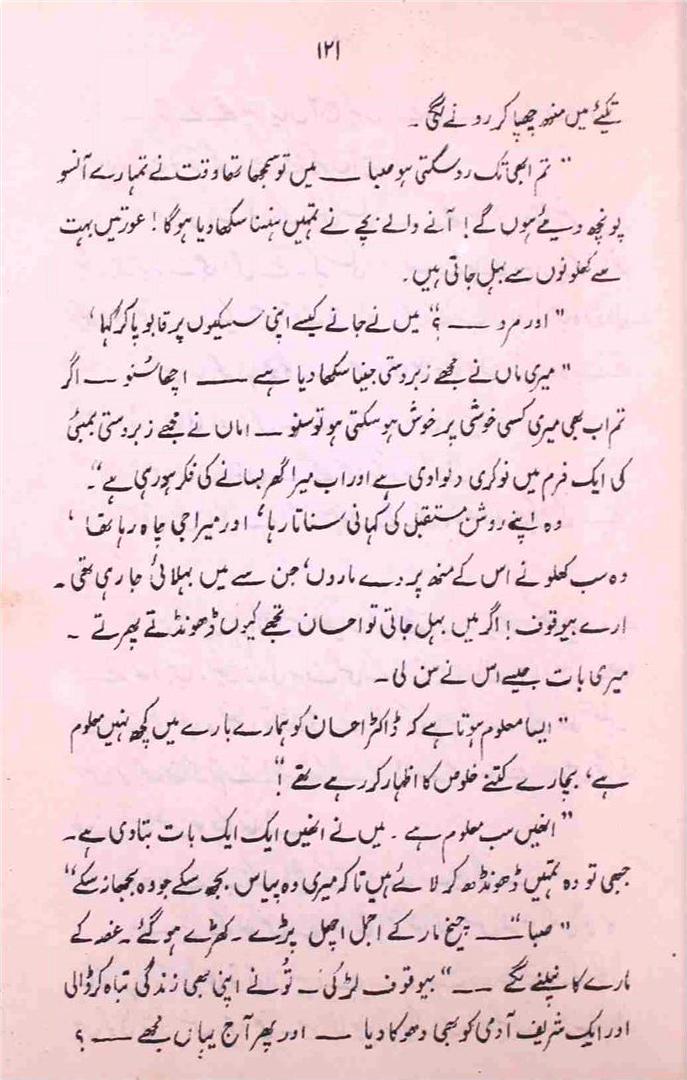 ۱۲۱
تکیئے میں منھ چھپا کر رونے لگی ۔
" تم ابھی تک رو سکتی ہو صبا ــــ میں تو سمجھا تھا وقت نے تمہارے آنسو
پونچھ دیئے ہوں گے! آنے والے بچے نے تمہیں ہنسنا سکھا دیا ہوگا! عورتیں بہت
سے کھلونوں سے بہل جاتی ہیں۔
" اور مرد ــــ ؟" میں نے جانے کیسے اپنی سسکیوں پر قابو پا کر کہا '
" میری ماں نے مجھے زبردستی جینا سکھا دیا ہے ــــ اچھا سُنو ــ اگر
تم اب بھی میری کسی خوشی پر خوش ہو سکتی ہو تو سنو ــ اماں نے مجھے زبردستی بمبئی
کی ایک فرم میں نوکری دلوا دی ہے اور اب میرا گھر بسانے کی فکر ہو رہی ہے "۔
وہ اپنے روشن مستقبل کی کہانی سناتا رہا ' اور میرا جی چاہ رہا تھا '
وہ سب کھلونے اس کے منھ پر دے ماروں ' جن سے میں بہلائی جا رہی تھی ۔
ارے بیوقوف! اگر میں بہل جاتی تو احسان تجھے کیوں ڈھونڈتے پھرتے ۔
میری بات جیسے اس نے سن لی ۔
" ایسا معلوم ہوتا ہے کہ ڈاکٹر احسان کو ہمارے بارے میں کچھ نہیں معلوم
ہے ' بچارے کتنے خلوص کا اظہار کر رہے تھے !"
" انھیں سب معلوم ہے ۔ میں نے انھیں ایک ایک بات بتا دی ہے ۔
جبھی تو وہ تمہیں ڈھونڈھ کر لائے ہیں تاکہ میری وہ پیاس بجھ سکے جو وہ بجھا نہ سکے "
" صبا " ــــ چیخ مار کے اجمل اچھل پڑے ۔ کھڑے ہو گئے ۔ غصہ کے
مارے کانپنے لگے ــــ " بیوقوف لڑکی ۔ تُو نے اپنی بھی زندگی تباہ کر ڈالی
اور ایک شریف آدمی کو بھی دھوکا دیا ــــ اور پھر آج یہاں مجھے ــــ ؟